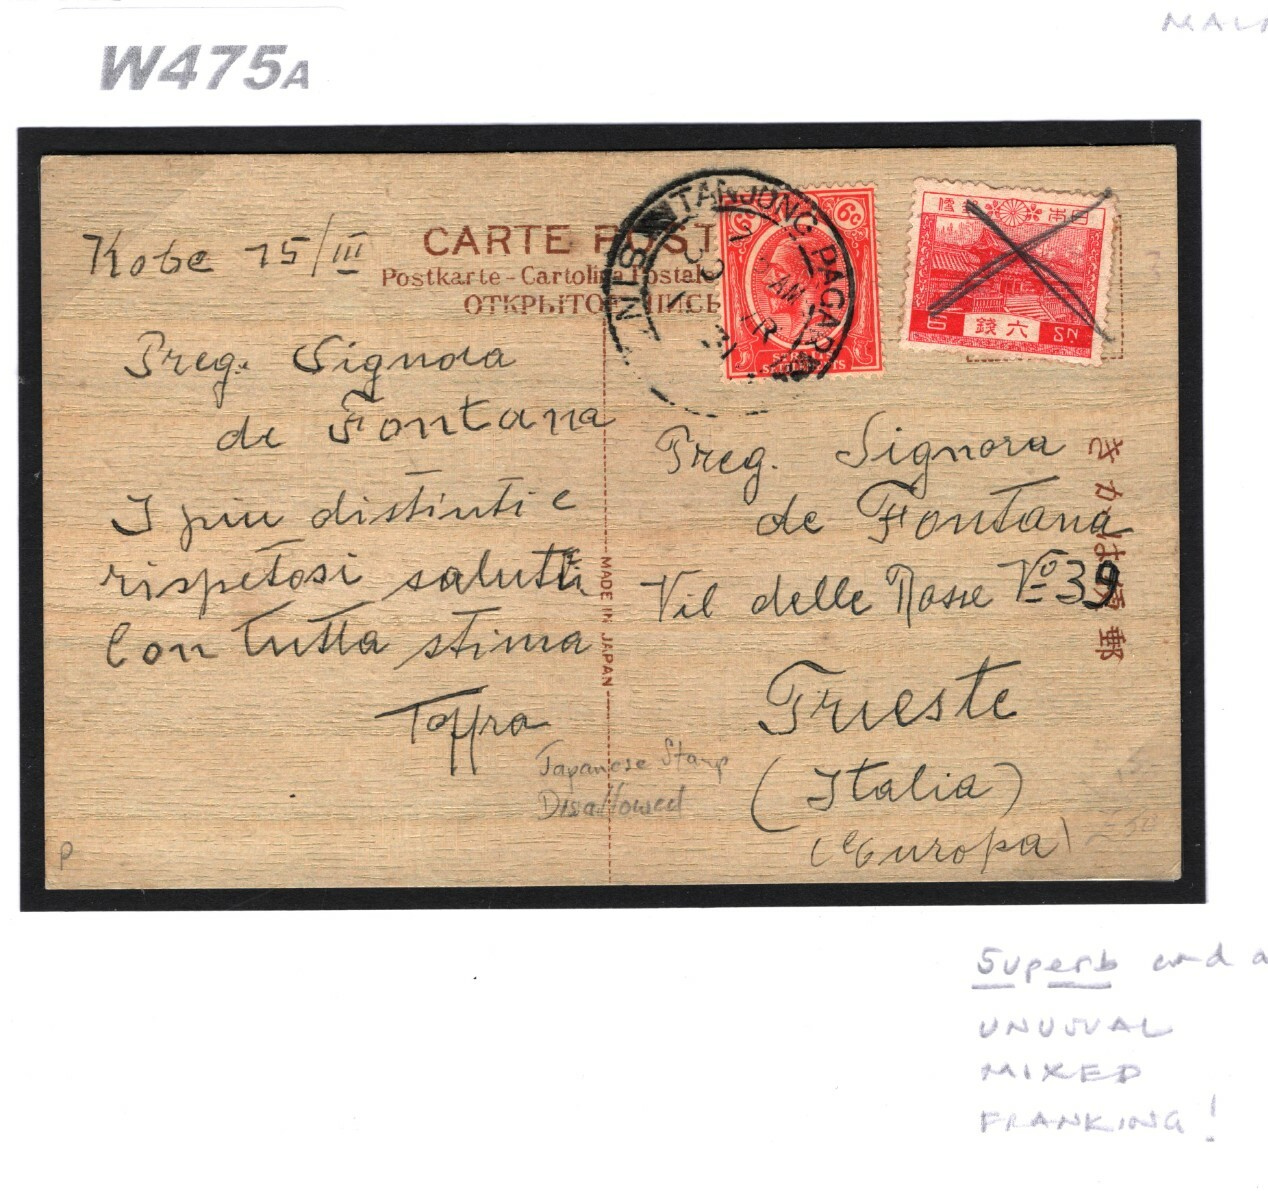 W475A
Kobe 15/III
CARTE POST
Postkarte - Cartolina Postale
TANJONG PAGAR
6c
6c
STRAITS
SETTLEMENTS
日本郵便
六錢
6
SN
Preg. Signora
de Fontana
I piu distinti e
rispetosi saluti
Con tutta stima
Toffra
MADE IN JAPAN
Preg. Signora
de Fontana
Vil delle Rose No 39
Trieste
(Italia)
(Europa)
きかは便郵
Japanese Stamp
Disallowed
P
Superb and
UNUSUAL
MIXED
FRANKING!